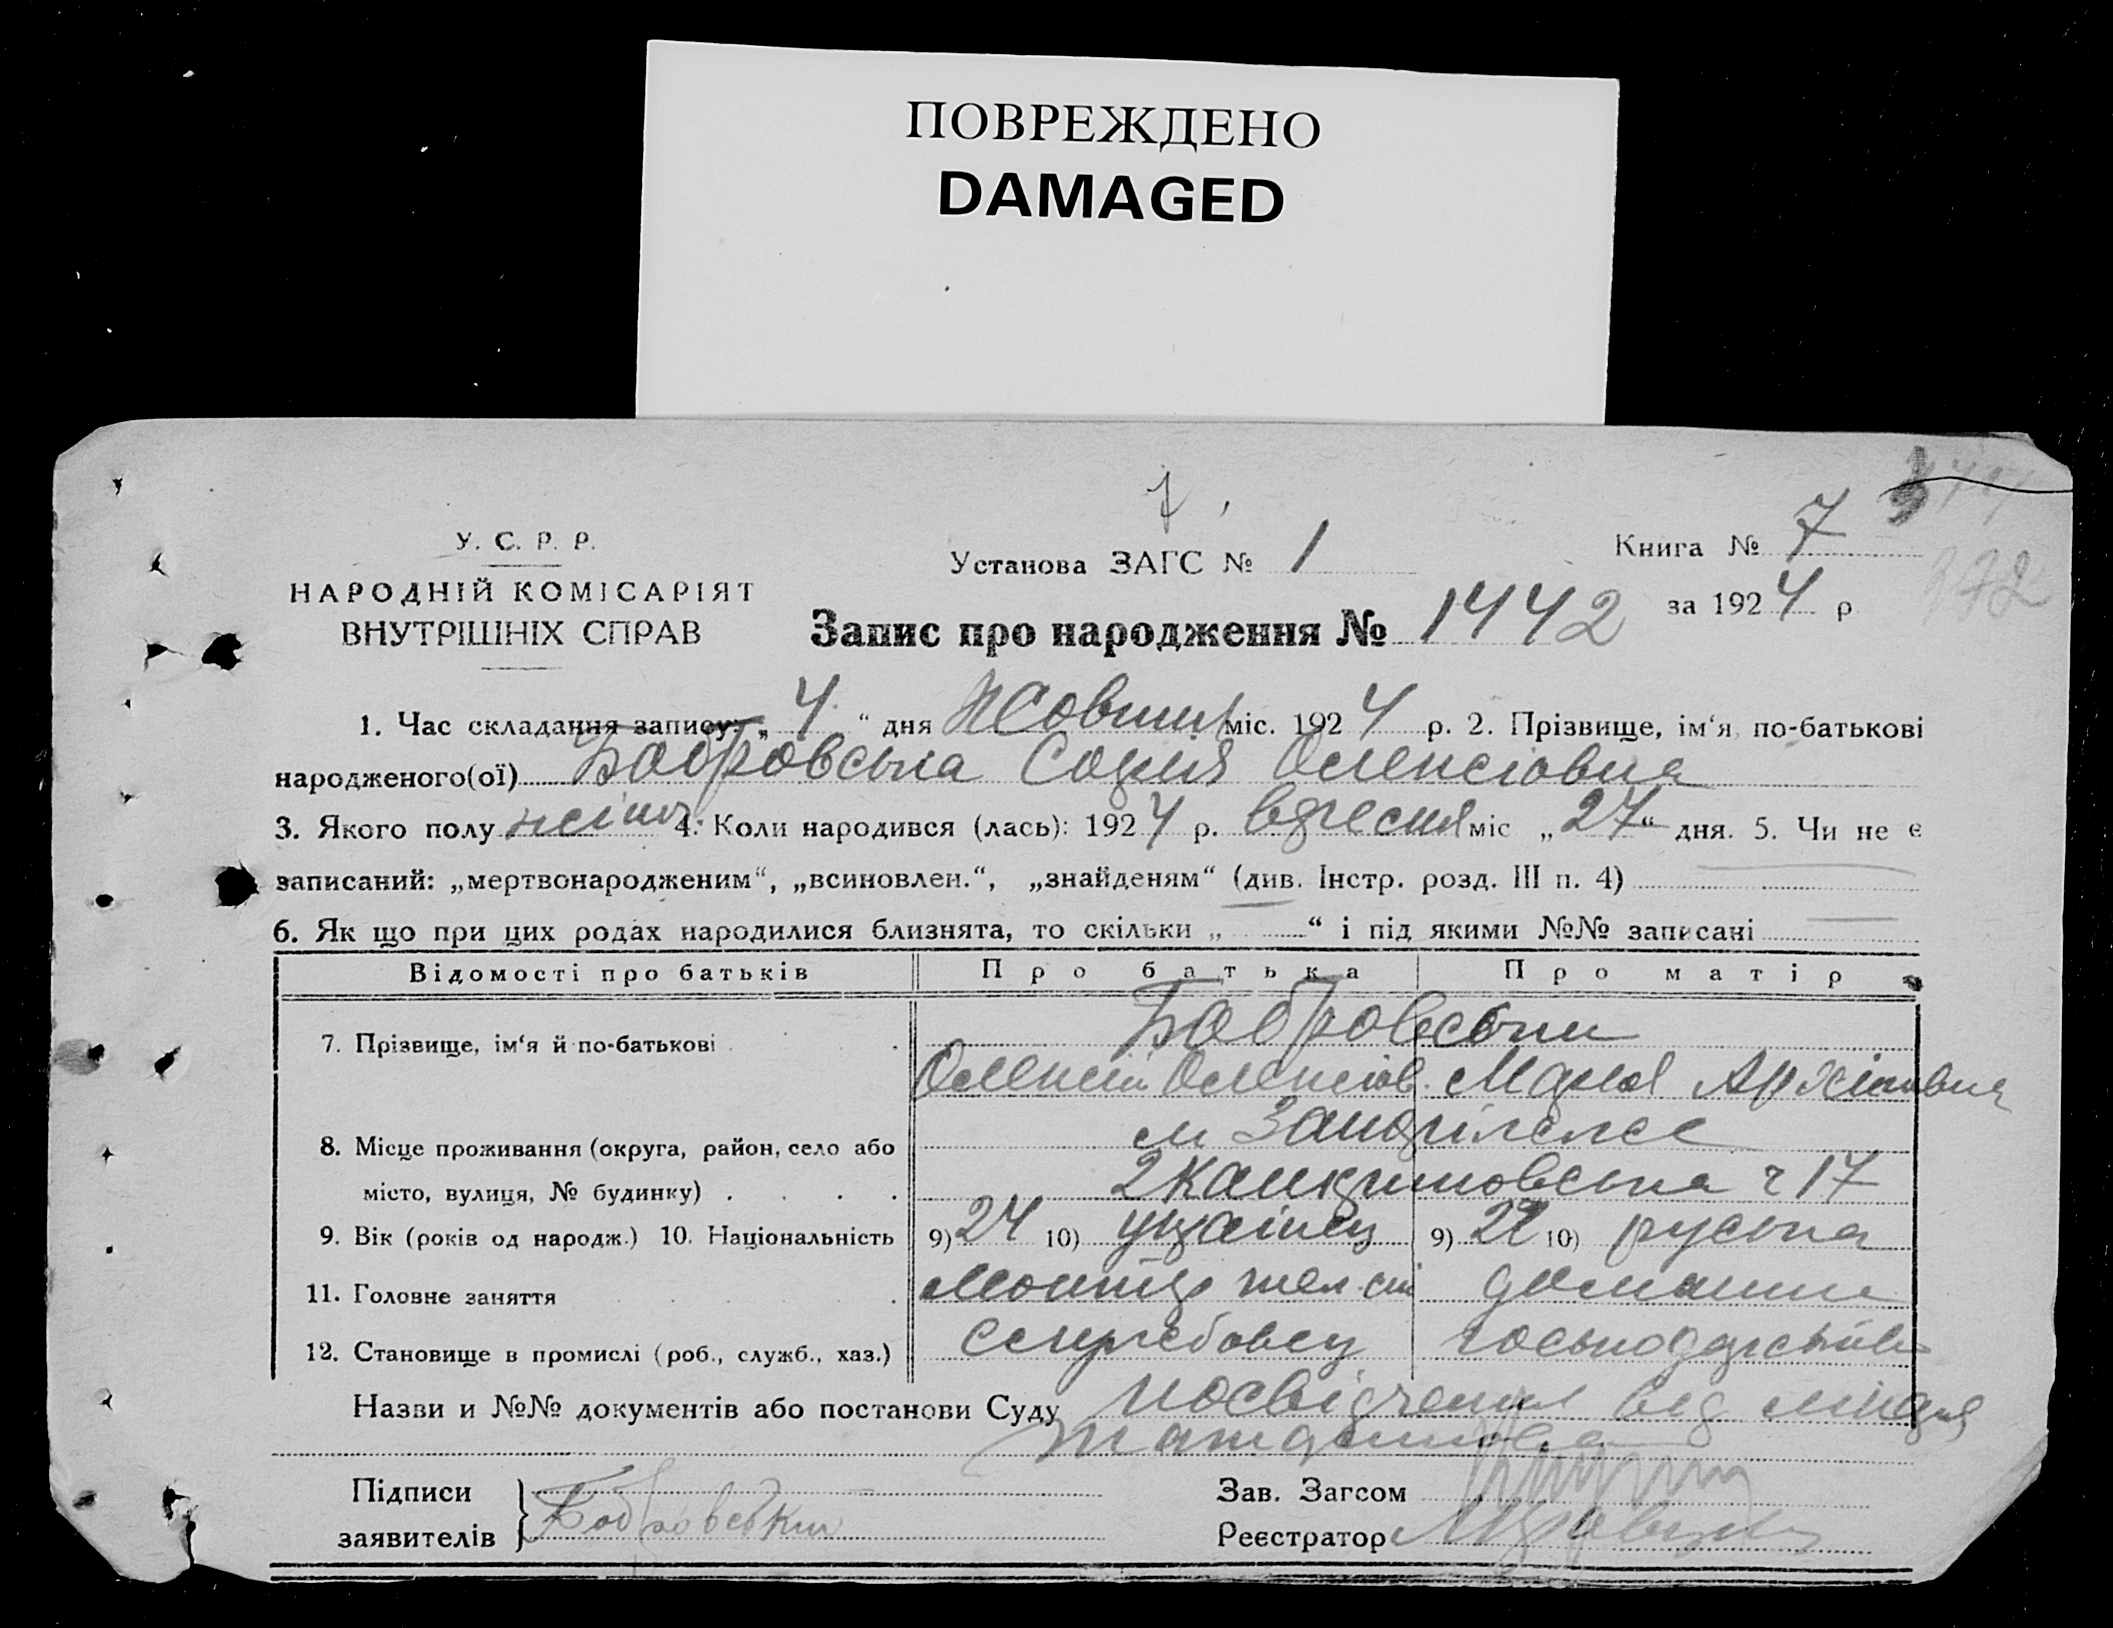 ПОВРЕЖДЕНО
DAMAGED
7
У. С. Р. Р.
НАРОДНІЙ КОМІСАРІЯТ
ВНУТРІШНІХ СПРАВ
Установа ЗАГС № 1
Книга № 7
372
за 1924 р
Запис про народження № 1442
1. Час складання запису: „ 4 “ дня Жовтня міс. 1924 р. 2. Прізвище, ім‘я, по-батькові
народженого(ої) Бобровська Софія Олексіовна
3. Якого полу жіноч. 4. Коли народився (лась): 1924 р. вересня міс „ 27 “ дня. 5. Чи не є
записаний: „мертвонародженим“, „всиновлен.“, „знайденям“ (див. Інстр. розд. III п. 4)
6. Як що при цих родах народилися близнята, то скільки „ “ і під якими №№ записані
Відомості про батьків Про батька Про матір
7. Прізвище, ім‘я й по-батькові Бобровськи
Олексій Олексіов. Марія Архіповна
8. Місце проживання (округа, район, село або м Запоріжже
місто, вулиця, № будинку) 17
9. Вік (років од народж.) 10. Національність 9) 24 10) украінец 9) 22 10) руська
11. Головне заняття Монтер домашне
12. Становище в промислі (роб., служб., хаз.) господарство
Назви и №№ документів або постанови Суду посвідчення від лікаря
Підписи
заявителів } Бобровський
Зав. Загсом
Реєстратор